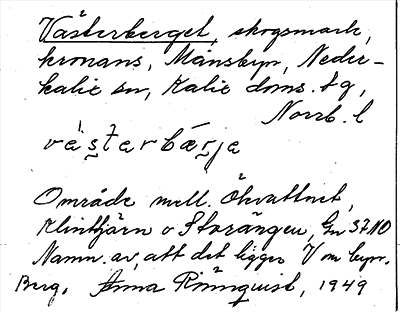 Västerberget, skogsmark,
kronans, Månsbyn, Neder-
kalix sn, Kalix doms. tg,
Norrb. l
väs̬terbær̬je
Område mell. Ökvattnet,
Klinttjärn o Storängen, Gen 37 NO
Namn. av, att det ligger V om byn.
Berg. Anna Rönnquist, 1949